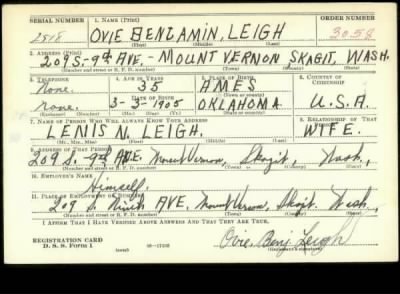 SERIAL NUMBER 1. NAME (Print) ORDER NUMBER
2518 OVIE BENJAMIN, LEIGH 3058
(First) (Middle) (Last)
2. ADDRESS (Print)
209 S-9th AVE.- MOUNT VERNON SKAGIT, WASH.
(Number and street or R. F. D. number) (Town) (County) (State)
3. TELEPHONE 4. AGE IN YEARS 5. PLACE OF BIRTH 6. COUNTRY OF CITIZENSHIP
None. 35 AMES
DATE OF BIRTH (Town or county)
none. 3-3-1905 OKLAHOMA U.S.A.
(Exchange) (Number) (Mo.) (Day) (Yr.) (State or country)
7. NAME OF PERSON WHO WILL ALWAYS KNOW YOUR ADDRESS 8. RELATIONSHIP OF THAT PERSON
LENIS N. LEIGH. WIFE.
(Mr., Mrs., Miss) (First) (Middle) (Last)
9. ADDRESS OF THAT PERSON
209 S. 9th AVE. Mount Vernon, Skagit, Wash.,
(Number and street or R. F. D. number) (Town) (County) (State)
10. EMPLOYER'S NAME
Himself.
11. PLACE OF EMPLOYMENT OR BUSINESS
209 S. Ninth AVE. Mount Vernon, Skagit, Wash.,
(Number and street or R. F. D. number) (Town) (County) (State)
I AFFIRM THAT I HAVE VERIFIED ABOVE ANSWERS AND THAT THEY ARE TRUE.
REGISTRATION CARD
D. S. S. Form 1 Ovie. Benj. Leigh